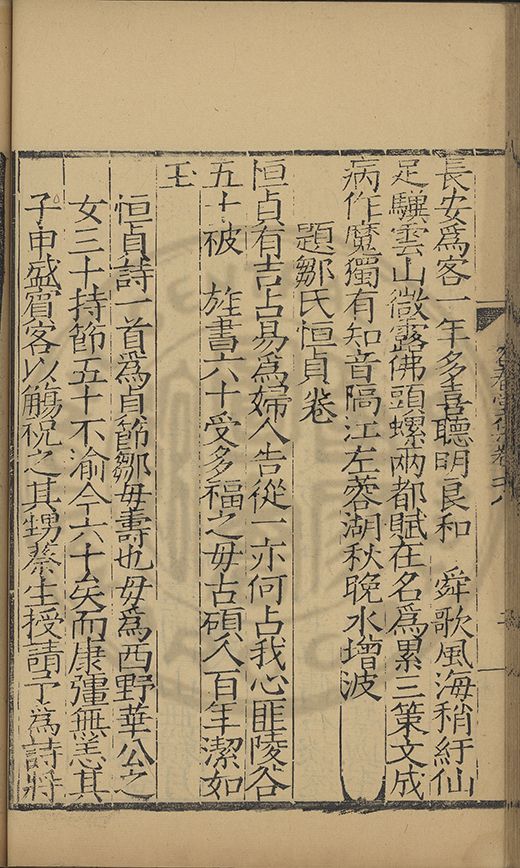 長安爲客一年多喜聽明良和　舜歌風海稍紆仙
足驥雲山微露佛頭螺兩都賦在名爲累三策文成
病作魔獨有知音隔江左蓉湖秋晚水增波
題鄒氏恒貞卷
恒貞有吉占易爲婦人告從一亦何占我心匪陵谷
五十被　旌書六十受多福之毋占碩人百年潔如
玉
恒貞詩一首爲貞節鄒毋壽也毋爲西野華公之
女三十持節五十不渝今六十矣而康彊無恙其
子申盛賓客以觴祝之其甥蔡生授請予爲詩將